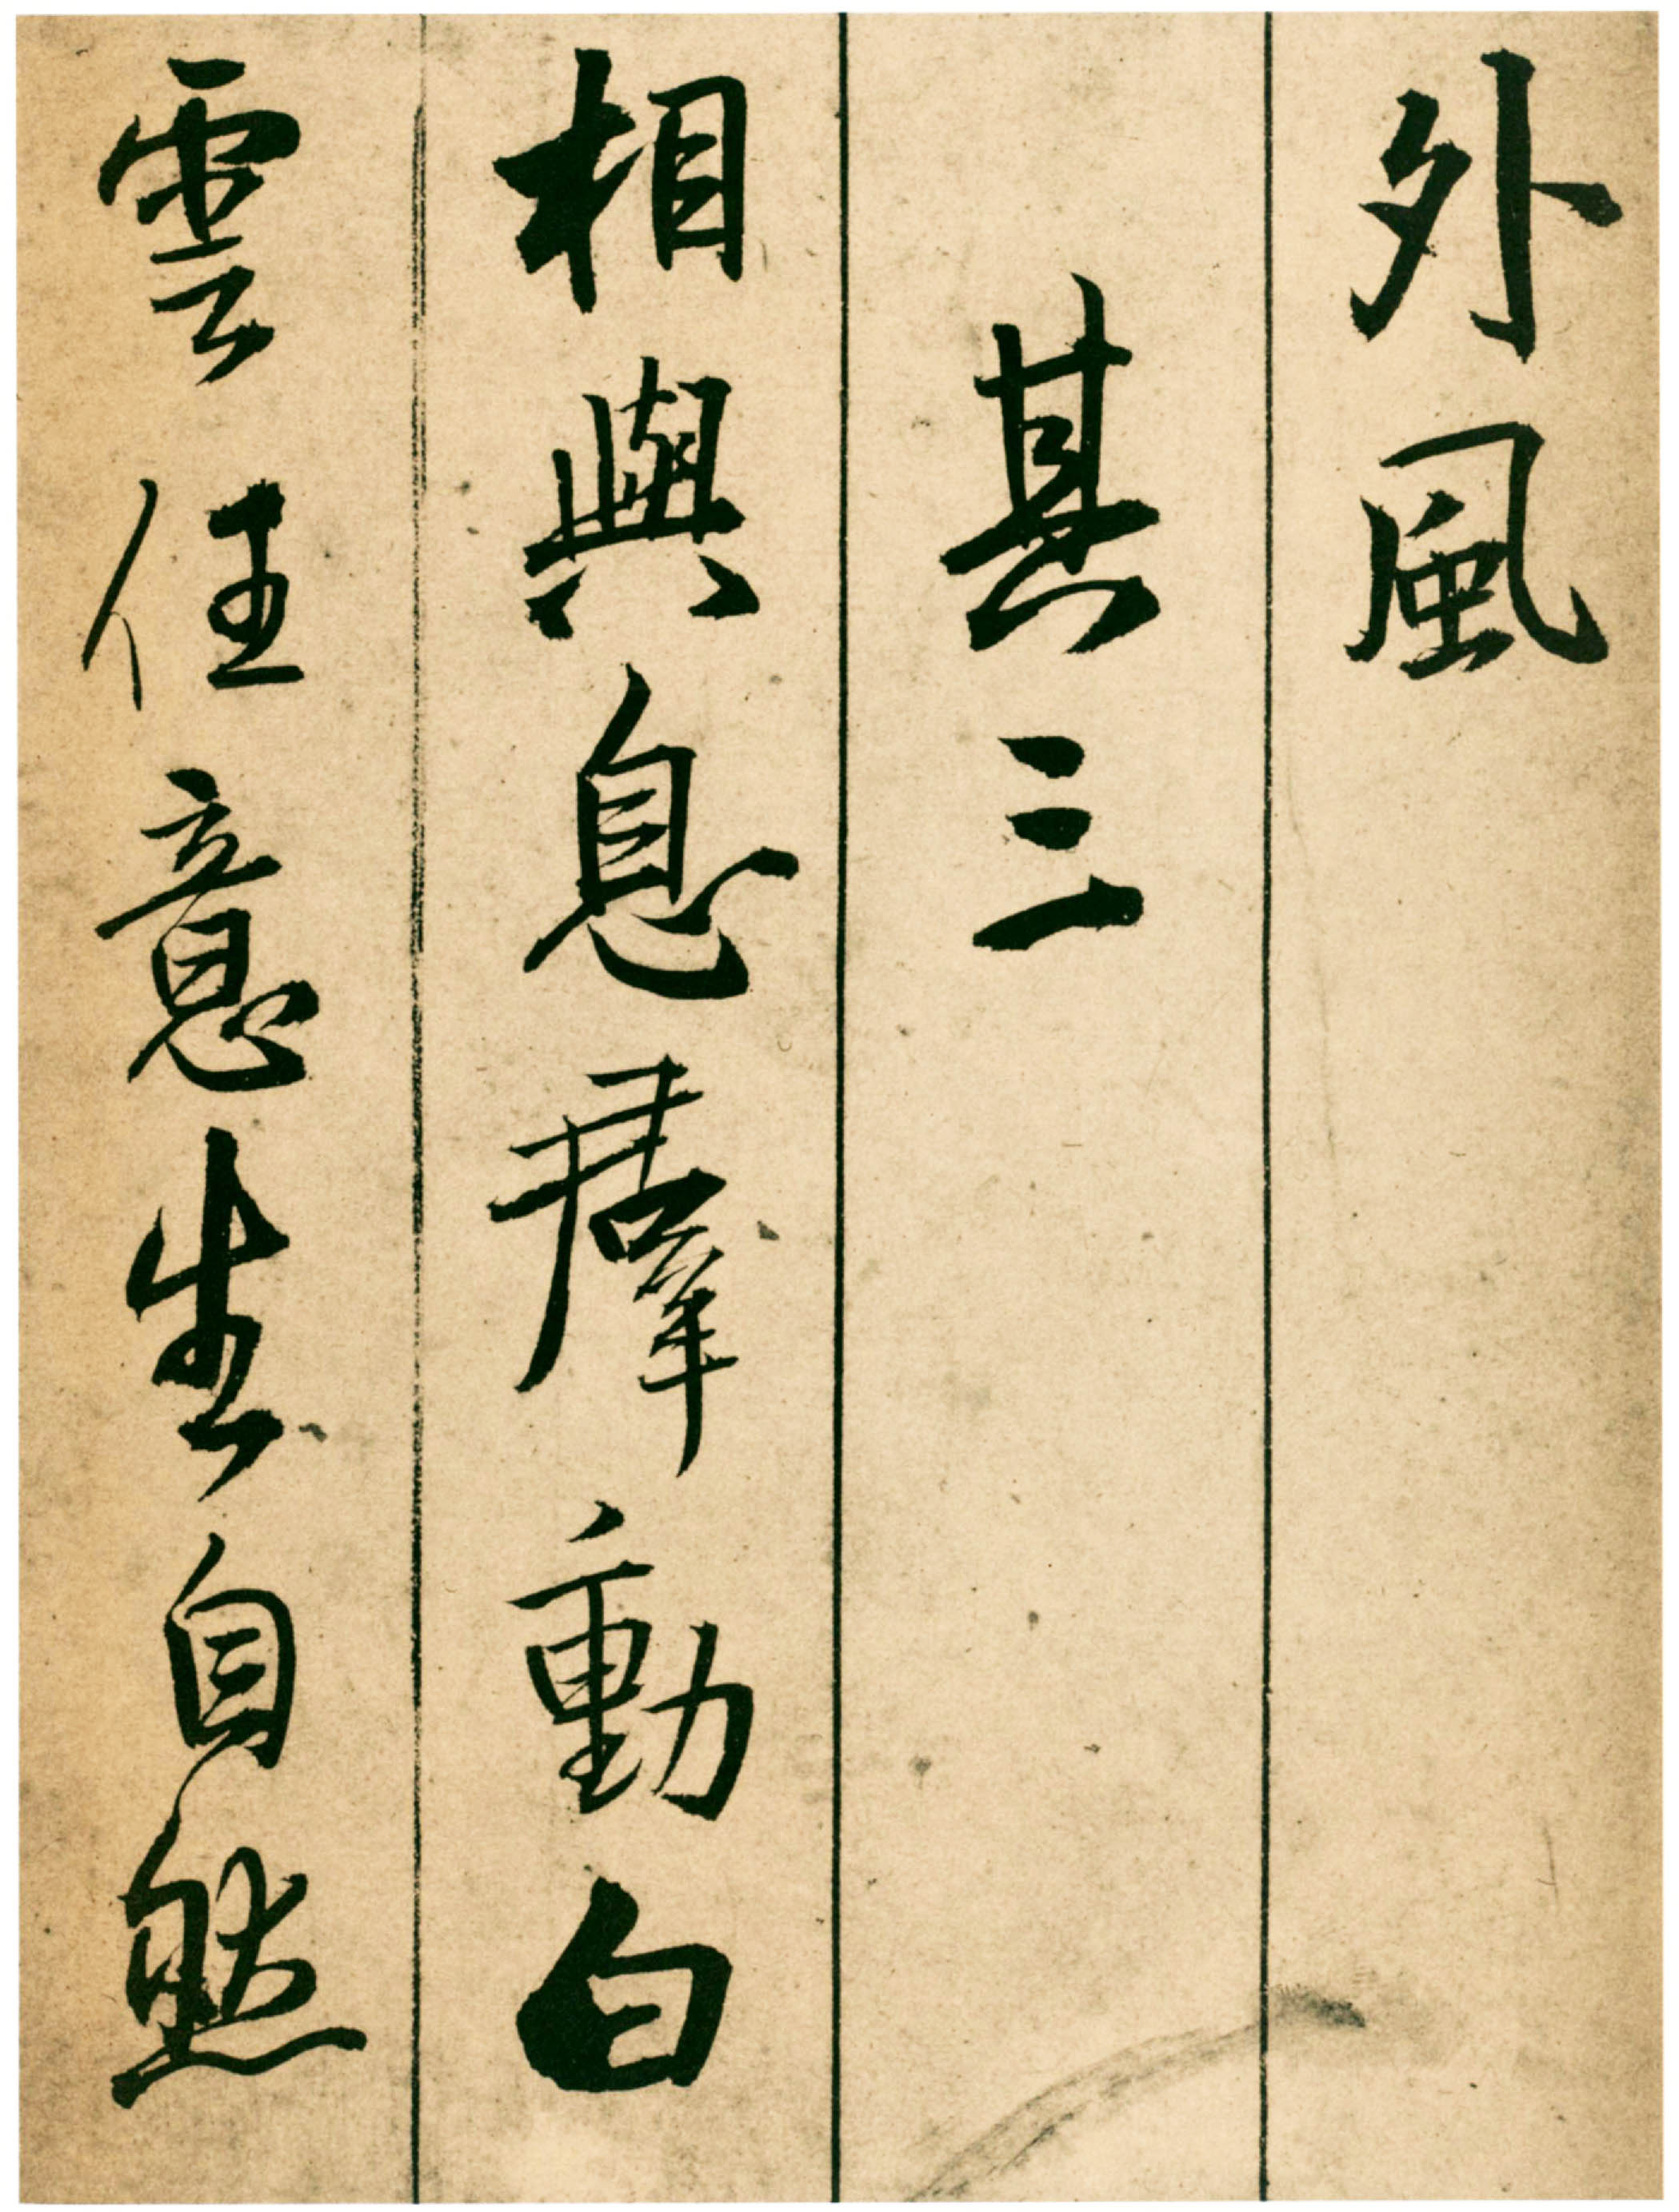 外風
其三
相與息群動白
雲任意生自然